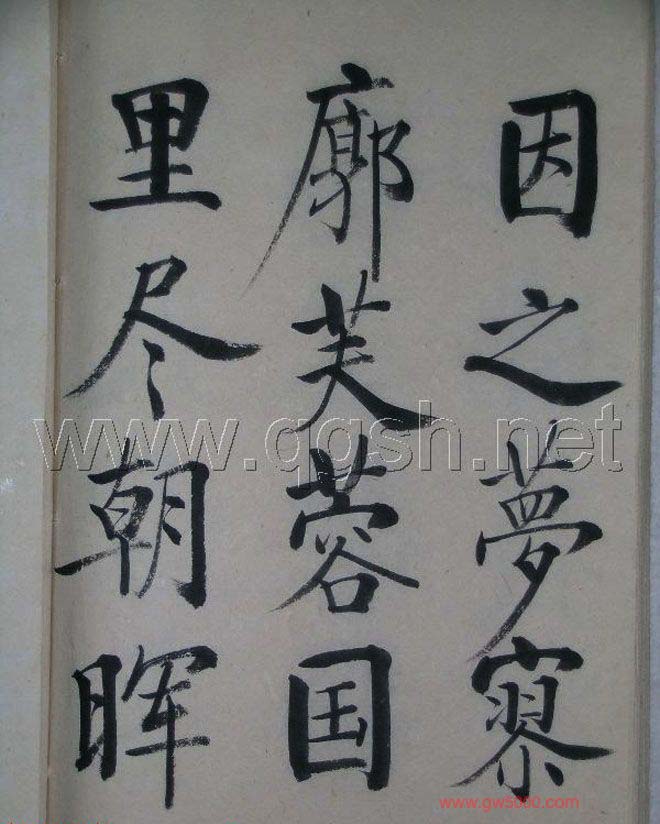 因之夢寥
廓芙蓉国
里尽朝晖
www.qgsh.net
www.gw5000.com